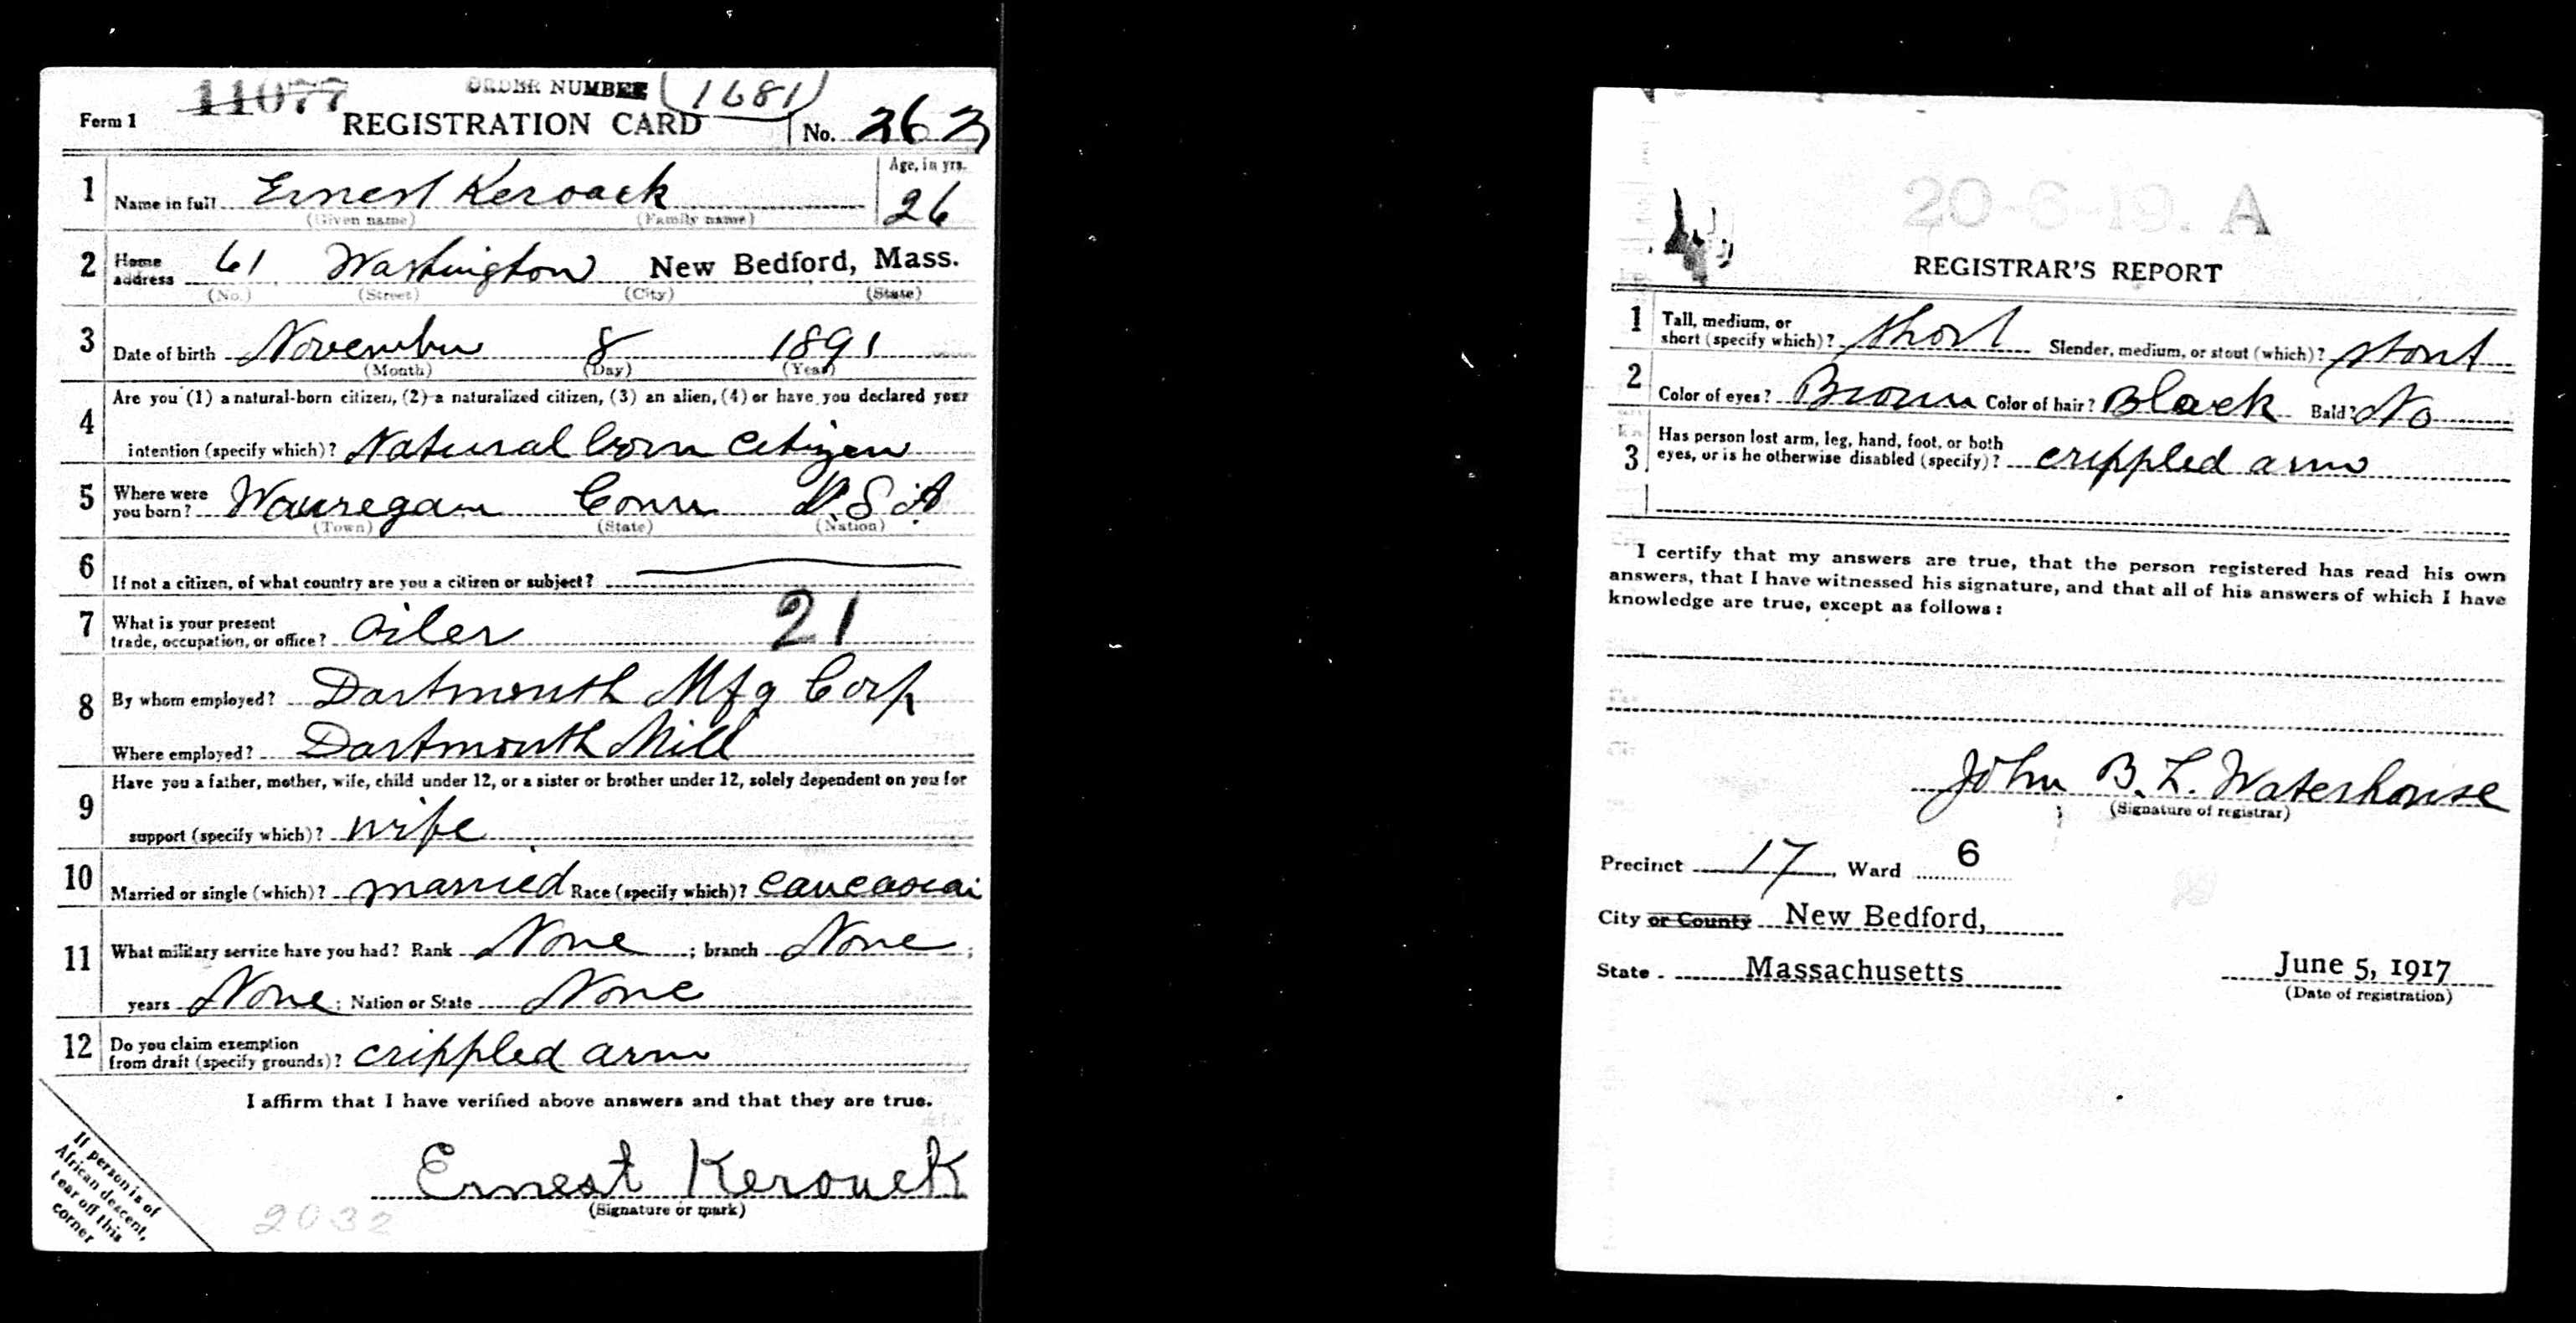 11077
ORDER NUMBER (1681)
Form 1 REGISTRATION CARD No. 263
1 Name in full Ernest Keroack Age, in yrs. 26
(Given name) (Family name)
2 Home address 61 Washington New Bedford, Mass.
(No.) (Street) (City) (State)
3 Date of birth November 8 1891
(Month) (Day) (Year)
4 Are you (1) a natural-born citizen, (2) a naturalized citizen, (3) an alien, (4) or have you declared your
intention (specify which)? Natural born citizen
5 Where were you born? Wauregan Conn U.S.A
(Town) (State) (Nation)
6 If not a citizen, of what country are you a citizen or subject?
7 What is your present trade, occupation, or office? Oiler 21
8 By whom employed? Dartmouth Mfg Corp
Where employed? Dartmouth Mill
9 Have you a father, mother, wife, child under 12, or a sister or brother under 12, solely dependent on you for
support (specify which)? wife
10 Married or single (which)? married Race (specify which)? caucasian
11 What military service have you had? Rank None; branch None;
years None; Nation or State None
12 Do you claim exemption from draft (specify grounds)? crippled arm
I affirm that I have verified above answers and that they are true.
Ernest Kerouck
(Signature or mark)
2032
If person is of
African descent,
tear off this
corner
20-6-19. A
REGISTRAR'S REPORT
1 Tall, medium, or short (specify which)? short Slender, medium, or stout (which)? stout
2 Color of eyes? Brown Color of hair? Black Bald? No
3 Has person lost arm, leg, hand, foot, or both eyes, or is he otherwise disabled (specify)? crippled arm
I certify that my answers are true, that the person registered has read his own
answers, that I have witnessed his signature, and that all of his answers of which I have
knowledge are true, except as follows:
John B. L. Waterhouse
(Signature of registrar)
Precinct 17, Ward 6
City or County New Bedford,
State Massachusetts June 5, 1917
(Date of registration)